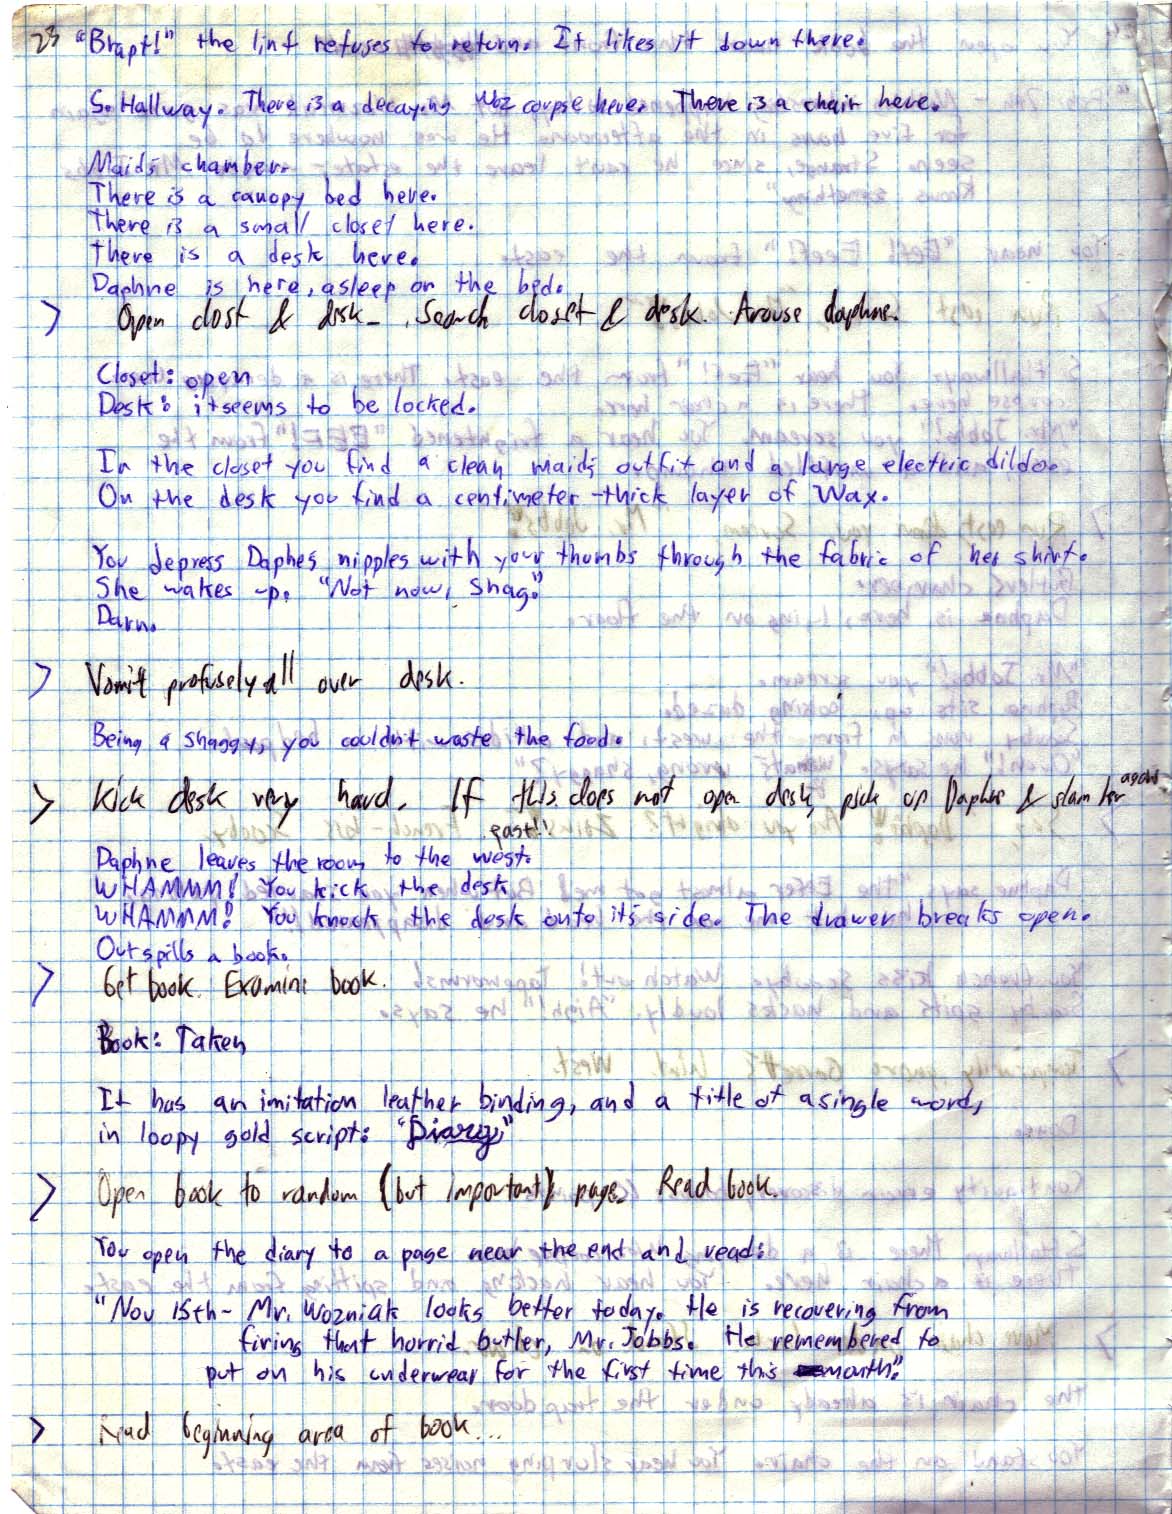 23 "Brapt!" the lint refuses to return. It likes it down there.
S. Hallway. There is a decaying Woz corpse here. There is a chair here.
Maid's chamber.
There is a canopy bed here.
There is a small closet here.
There is a desk here.
Daphne is here, asleep on the bed.
> Open clost & desk. Search closet & desk. Arouse daphne.
Closet: open
Desk: it seems to be locked.
In the closet you find a clean maid's outfit and a large electric dildo.
On the desk you find a centimeter-thick layer of Wax.
You depress Daphes nipples with your thumbs through the fabric of her shirt.
She wakes up. "Not now, Shag."
Darn.
> Vomit profusely all over desk.
Being a shaggy, you couldn't waste the food.
> Kick desk very hard. If this does not open desk, pick up Daphne & slam her against
east!!
Daphne leaves the room to the west.
WHAMMM! You kick the desk
WHAMMM! You knock the desk onto it's side. The drawer breaks open.
Out spills a book.
> Get book. Examine book.
Book: Taken
It has an imitation leather binding, and a title of a single word,
in loopy gold script: "Diary,"
> Open book to random (but important) page. Read book.
You open the diary to a page near the end and read:
"Nov 15th - Mr. Wozniak looks better today. He is recovering from
firing that horrid butler, Mr. Jobbs. He remembered to
put on his underwear for the first time this month."
> Read beginning area of book...